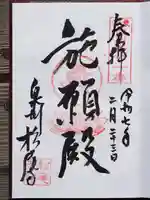 奉拝
令和七年
二月二十三日
施願殿
泉州